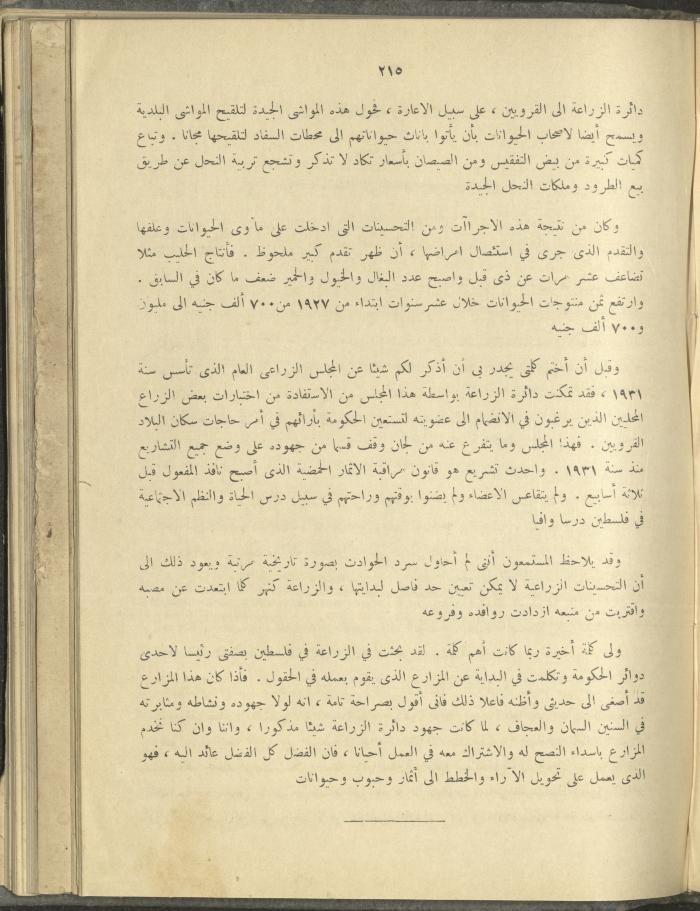 ٢١٥
دائرة الزراعة الى القرويين ، على سبيل الاعارة ، فحول هذه المواشى الجيدة لتلقيح المواشى البلدية
ويسمح أيضا لاصحاب الحيوانات بأن يأتوا باناث حيواناتهم الى محطات السفاد لتلقيحها مجانا . وتباع
كميات كبيرة من بيض التفقيس ومن الصيصان بأسعار تكاد لا تذكر وتشجع تربية النحل عن طريق
بيع الطرود وملكات النحل الجيدة
وكان من نتيجة هذه الاجراآت ومن التحسينات التى ادخلت على مآوى الحيوانات وعلفها
والتقدم الذى جرى في استئصال امراضها ، أن ظهر تقدم كبير ملحوظ . فأنتاج الحليب مثلا
تضاعف عشر مرات عن ذى قبل واصبح عدد البغال والخيول والحمير ضعف ما كان في السابق .
وارتفع ثمن منتوجات الحيوانات خلال عشر سنوات ابتداء من ١٩٢٧ من ٧٠٠ ألف جنيه الى مليون
و٧٠٠ ألف جنيه
وقبل أن أختم كلمتى يجدر بى أن أذكر لكم شيئا عن المجلس الزراعى العام الذى تأسس سنة
١٩٣١ ، فقد تمكنت دائرة الزراعة بواسطة هذا المجلس من الاستفادة من اختبارات بعض الزراع
المحليين الذين يرغبون في الانضمام الى عضويته لتستعين الحكومة بأرائهم في أمر حاجات سكان البلاد
القرويين . فهذا المجلس وما يتفرع عنه من لجان وقف قسما من جهوده على وضع جميع التشاريع
منذ سنة ١٩٣١ . واحدث تشريع هو قانون مراقبة الاثمار الحمضية الذى أصبح نافذ المفعول قبل
ثلاثة أسابيع . ولم يتقاعس الاعضاء ولم يضنوا بوقتهم وراحتهم في سبيل درس الحياة والنظم الاجتماعية
في فلسطين درسا وافيا
وقد يلاحظ المستمعون أننى لم أحاول سرد الحوادث بصورة تاريخية مرتبة ويعود ذلك الى
أن التحسينات الزراعية لا يمكن تعيين حد فاصل لبدايتها ، والزراعة كنهر كلما ابتعدت عن مصبه
واقتربت من منبعه ازدادت روافده وفروعه
ولى كلمة أخيرة ربما كانت أهم كلمة . لقد بحثت في الزراعة في فلسطين بصفتى رئيسا لاحدى
دوائر الحكومة وتكلمت في البداية عن المزارع الذى يقوم بعمله في الحقول . فأذا كان هذا المزارع
قد أصغى الى حديثى وأظنه فاعلا ذلك فانى أقول بصراحة تامة ، انه لولا جهوده ونشاطه ومثابرته
في السنين السمان والعجاف ، لما كانت جهود دائرة الزراعة شيئا مذكورا ، واننا وان كنا نخدم
المزارع باسداء النصح له والاشتراك معه في العمل أحيانا ، فان الفضل كل الفضل عائد اليه ، فهو
الذى يعمل على تحويل الآراء والخطط الى أثمار وحبوب وحيوانات